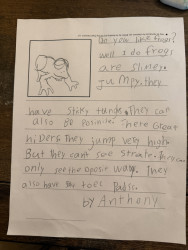 Do you like Frogs?
well I do frogs
are slimey
Jumpy, they
have stiky hands. They can
also be Posinis. There Great
hiders They jump very high
But they cant see strate
only see the oposit way. They
also have the toes Pads.
by Anthony